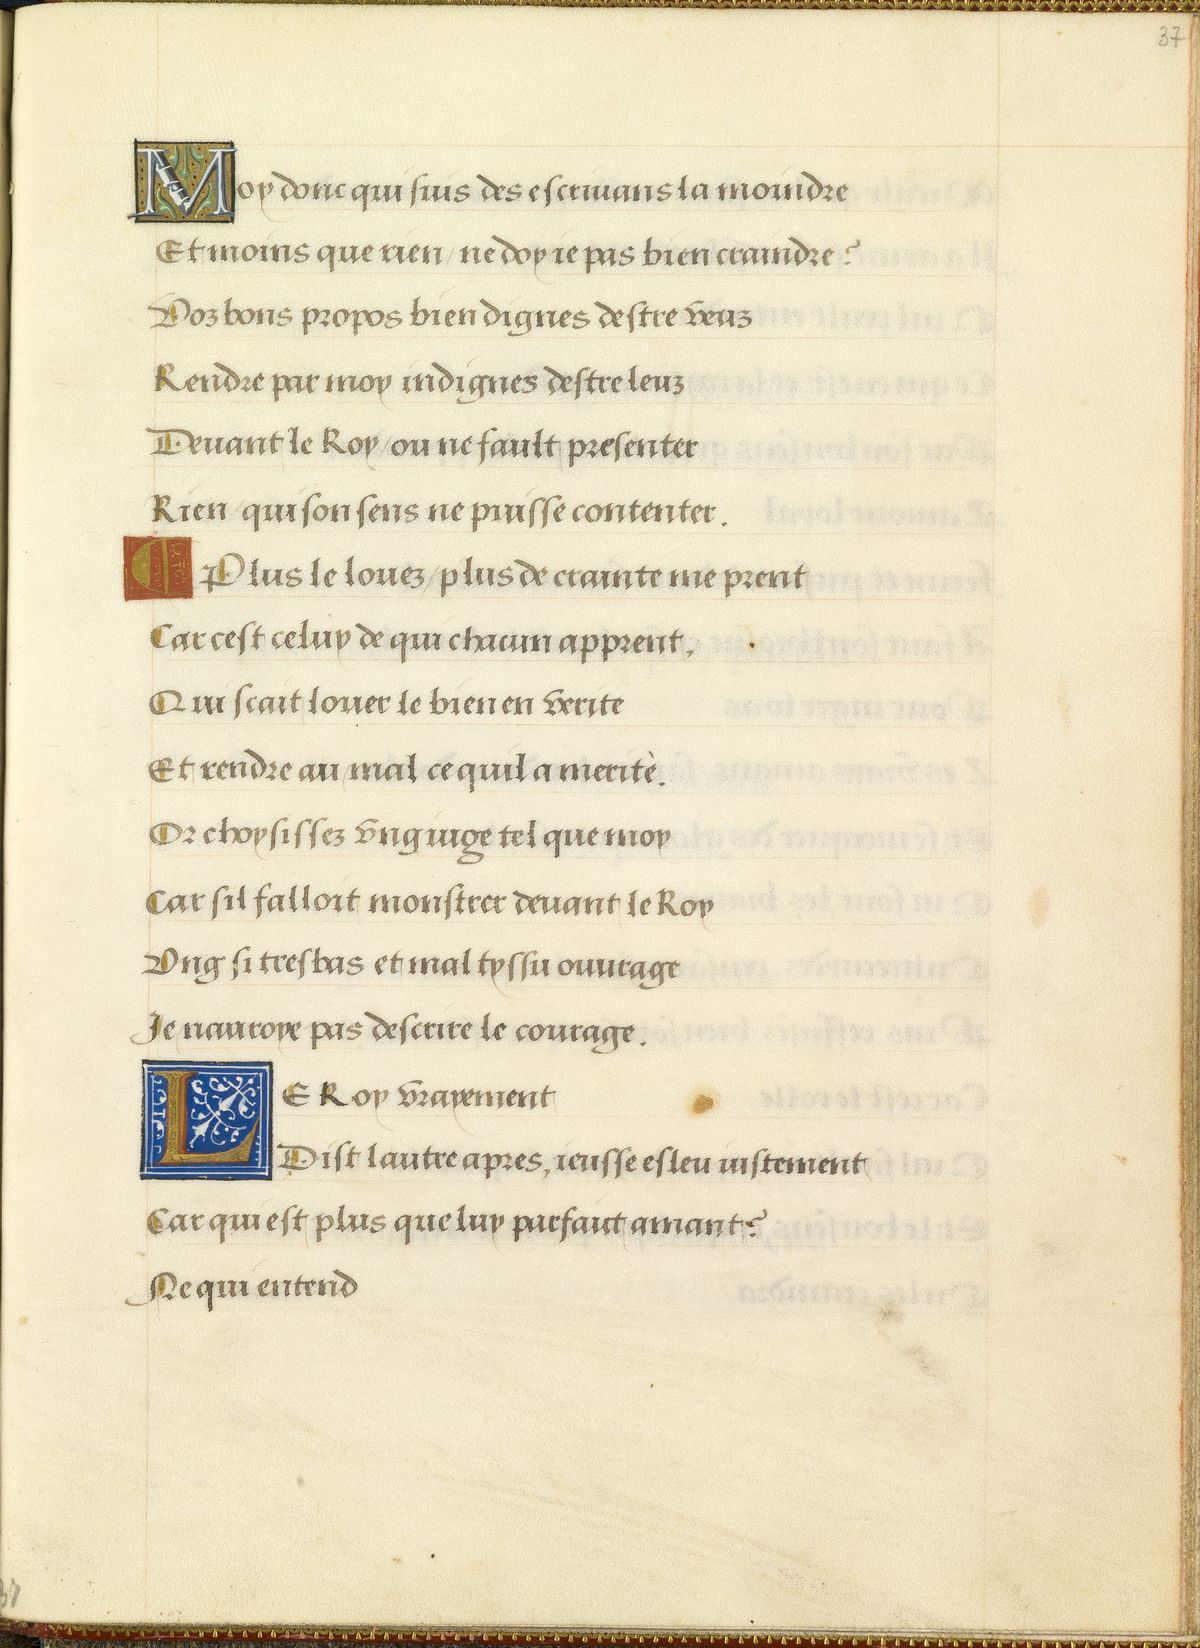 37
Moy donc qui suis des escriuans la moindre
Et moins que rien / ne doy ie pas bien craindre?
Voz bons propos bien dignes destre veuz
Rendre par moy indignes destre leuz
Deuant le Roy / ou ne fault presenter
Rien / qui son sens ne puisse contenter.
Plus le louez / plus de crainte me prent
Car cest celuy de qui chacun apprent,
Qui scait louer le bien en verite
Et rendre au mal ce quil a meritè.
Or choysissez vng iuge tel que moy
Car sil falloit monstrer deuant le Roy
Vng si tresbas et mal tyssu ouurage
Je nauroye pas descrire le courage.
LE Roy vrayement
Dist lautre apres, ieusse esleu iustement
Car qui est plus que luy parfaict amant?
Ne qui entend
37